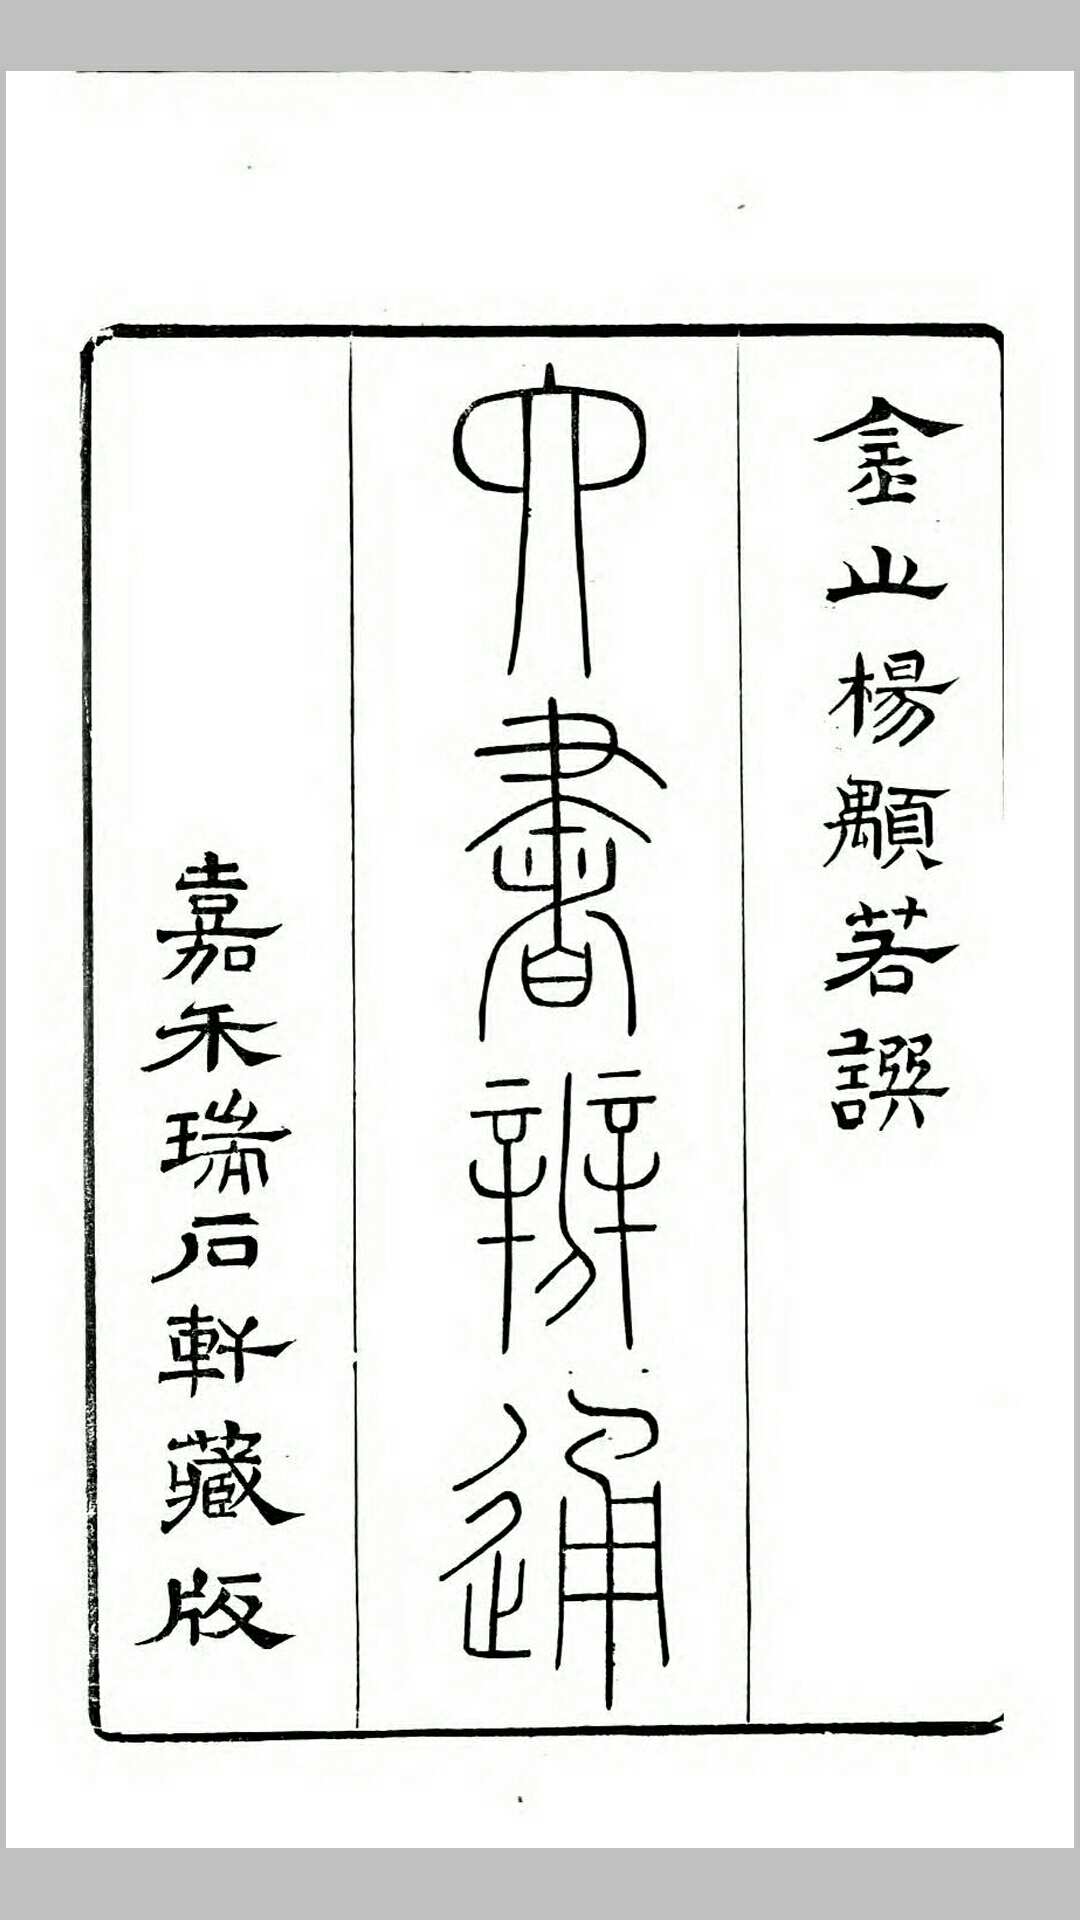 金山楊顒若譔
六書辨通
嘉禾瑞石軒藏版